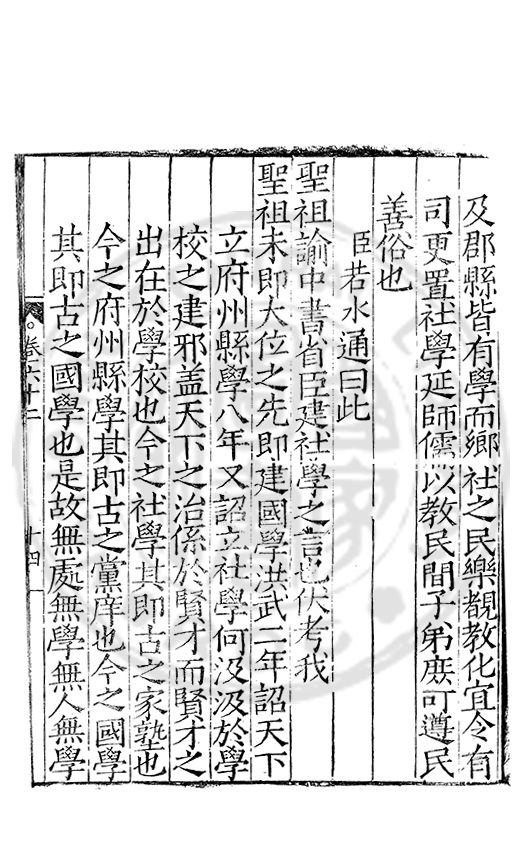 及郡縣皆有學而鄉社之民樂覩教化宜令有
司更置社學延師儒以教民間子弟庶可遵民
善俗也
臣若水通曰此
聖祖諭中書省臣建社學之言也伏考我
聖祖未即大位之先即建國學洪武二年詔天下
立府州縣學八年又詔立社學何汲汲於學
校之建邪盖天下之治係於賢才而賢才之
出在於學校也今之社學其即古之家塾也
今之府州縣學其即古之黨庠也今之國學
其即古之國學也是故無處無學無人無學
卷六十二
十四